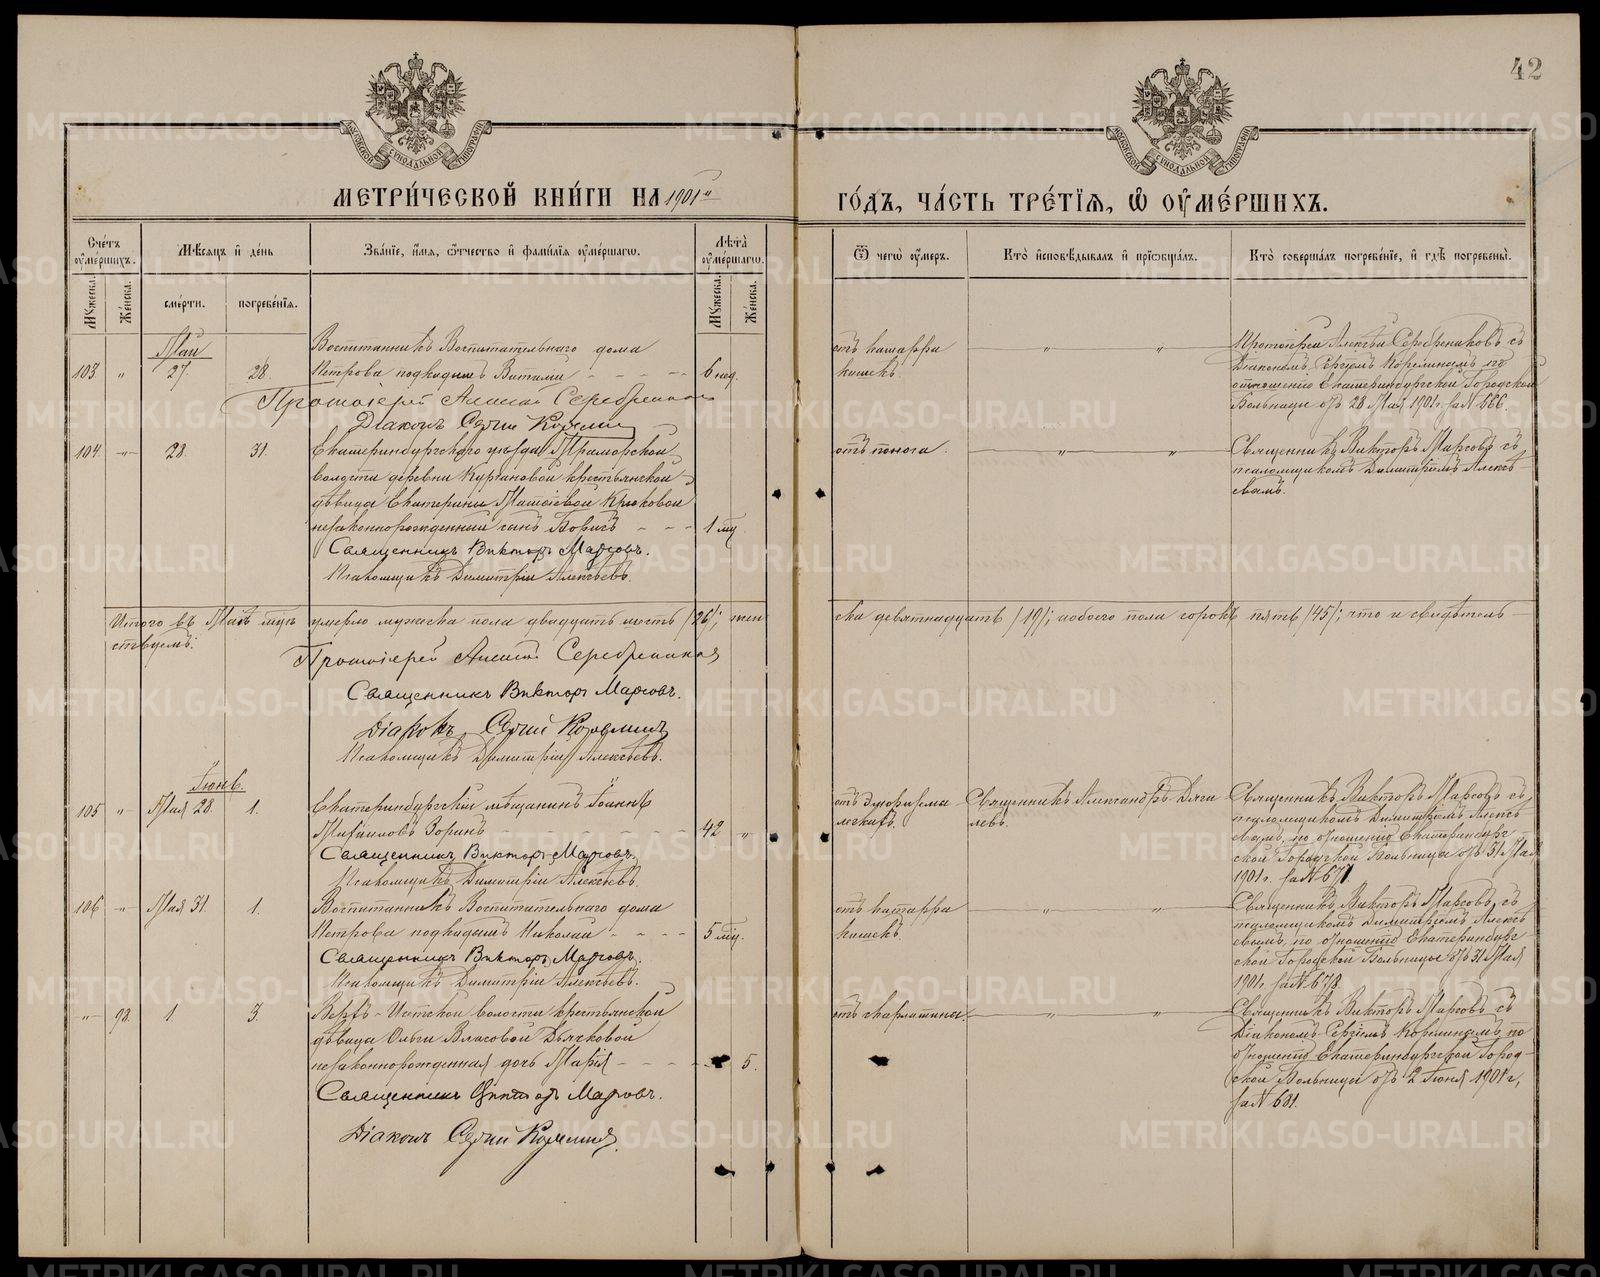 42
МОСКОВСКОЙ СѴНОДАЛЬНОЙ ТИПОГРАФІИ
МОСКОВСКОЙ СѴНОДАЛЬНОЙ ТИПОГРАФІИ
МЕТРИ́ЧЕСКОЙ КНИ́ГИ НА 1901й
ГО́ДЪ, ЧА́СТЬ ТРЕ́ТІЯ, Ѡ҆ ОУ҆МЕ́РШИХЪ.
Сче́тъ оу҆ме́ршихъ.
Мѣ́сяцъ и҆ де́нь
Зва́ніе, и҆́мя, ѻ҆́тчество и҆ фами́лія оу҆ме́ршагѡ.
Лѣ́та оу҆ме́ршагѡ.
Ѿ чегѡ̀ оу҆́меръ.
Кто̀ и҆сповѣ́дывалъ и҆ прїѡбща́лъ.
Кто̀ соверша́лъ погребе́ніе, и҆ гдѣ̀ погребены̀.
Мꙋ́жеска.
Же́нска.
сме́рти.
погребе́нія.
Мꙋ́жеска.
Же́нска.
Май
103 „ 27 28.
Воспитанникъ Воспитательнаго дома
Петрова подкидышъ Виталій - - - - 6 нед.
Протоіерей Алексій Серебренниковъ
Діаконъ Сергій Корелинъ
отъ катарра
кишекъ.
Протоіерей Алексѣй Серебренниковъ съ
Діакономъ Сергіемъ Корелинымъ, по
отношенію Екатеринбургской Городской
Больницы отъ 28 Мая 1901 г. за № 666.
104 „ 28. 31.
Екатеринбургскаго уѣзда, Мраморской
волости деревни Кургановой крестьянской
дѣвицы Екатерины Матѳіевой Крюковой
незаконнорожденный сынъ Борисъ - - - 1 мц.
Священникъ Викторъ Марковъ.
Псаломщикъ Димитрій Алексѣевъ.
отъ поноса.
Священникъ Викторъ Марковъ съ
псаломщикомъ Димитріемъ Алексѣ-
евымъ.
Итого въ Маѣ мцѣ умерло мужеска пола двадцать шесть /26/; жен
ска девятнадцать /19/; а обоего пола сорокъ пять /45/; что и свидѣтель-
ствуемъ:
Протоіерей Алексій Серебренниковъ
Священникъ Викторъ Марковъ.
Діаконъ Сергій Корелинъ
Псаломщикъ Димитрій Алексѣевъ.
Іюнь.
105 „ Мая 28. 1.
Екатеринбургскій мѣщанинъ Іоаннъ
Михаиловъ Зоринъ - - - - - - 42 „
Священникъ Викторъ Марковъ.
Псаломщикъ Димитрій Алексѣевъ.
отъ эмфиземы
легкихъ.
Священникъ Александръ Дяги
левъ.
Священникъ Викторъ Марковъ съ
псаломщикомъ Димитріемъ Алексѣ
евымъ, по отношенію Екатеринбург
ской Городской Больницы отъ 31 Мая
1901 г. за № 671
106 „ Мая 31. 1.
Воспитанникъ Воспитательнаго дома
Петрова подкидышъ Николай - - - - 5 мц.
Священникъ Викторъ Марковъ.
Псаломщикъ Димитрій Алексѣевъ.
отъ катарра
кишекъ.
Священникъ Викторъ Марковъ, съ
псаломщикомъ Димитріемъ Алексѣ
евымъ, по отношенію Екатеринбург
ской Городской Больницы отъ 31 Мая
1901 г. за № 678.
„ 98. 1 3.
Верхъ-Исетской волости крестьянской
дѣвицы Ольги Власовой Дьячковой
незаконнорожденная дочь Марія - - - - 5.
Священникъ Викторъ Марковъ.
Діаконъ Сергій Корелинъ.
отъ скарлатины.
Священникъ Викторъ Марковъ съ
Діакономъ Сергіемъ Корелинымъ, по
отношенію Екатеринбургской Город-
ской Больницы отъ 2 Іюня 1901 г.,
за № 681.
METRIKI.GASO-URAL.RU